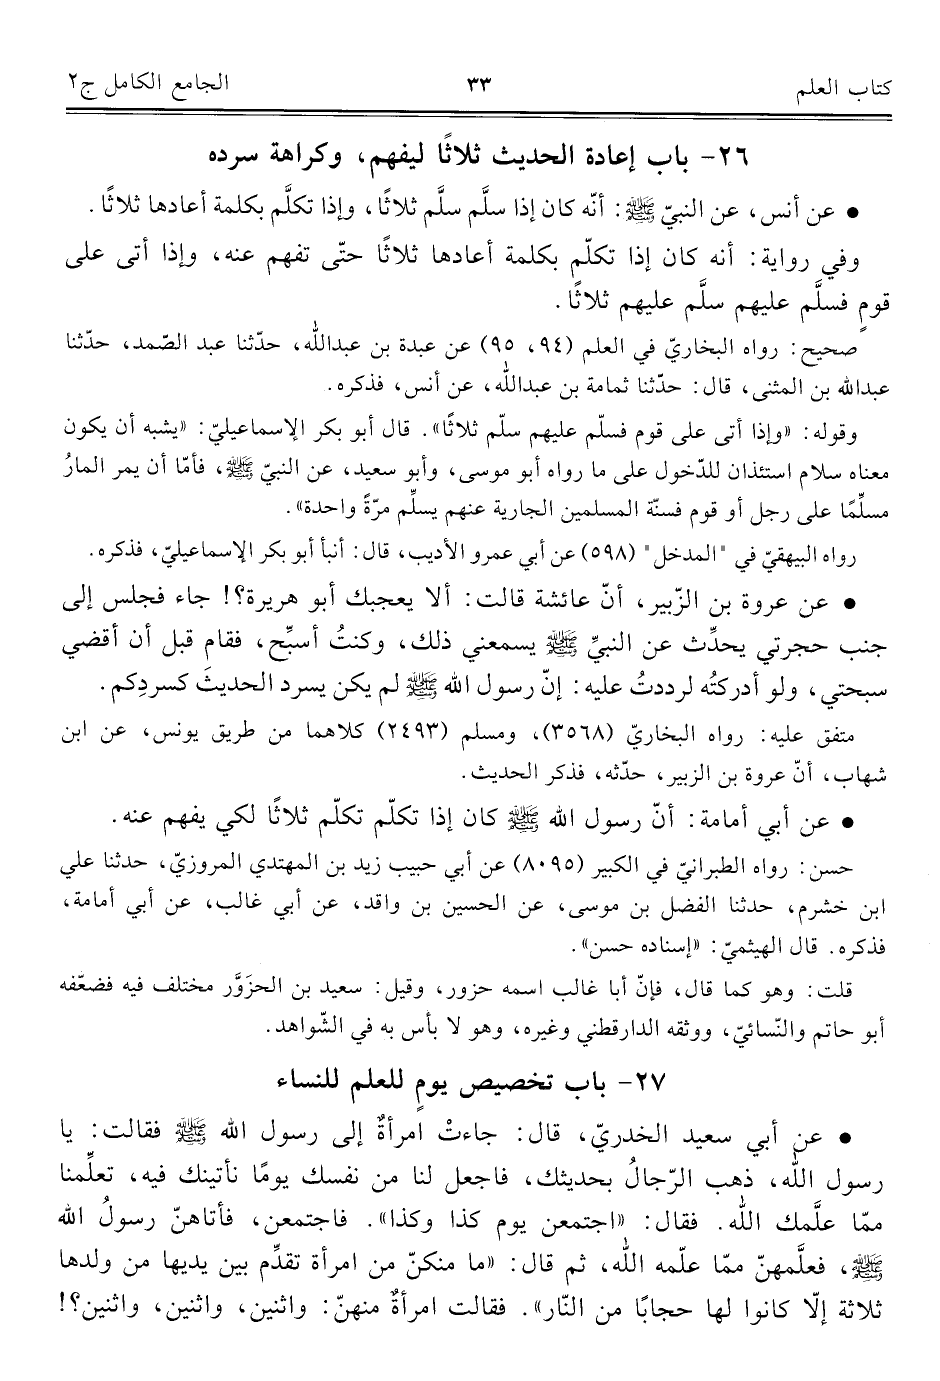 كتاب العلم ٣٣ الجامع الكامل ج٢
٢٦- باب إعادة الحديث ثلاثًا ليفهم، وكراهة سرده
• عن أنس، عن النبيّ ﷺ: أنّه كان إذا سلَّم سلَّم ثلاثًا، وإذا تكلَّم بكلمة أعادها ثلاثًا.
وفي رواية: أنه كان إذا تكلّم بكلمة أعادها ثلاثًا حتّى تفهم عنه، وإذا أتى على
قومٍ فسلَّم عليهم سلَّم عليهم ثلاثًا.
صحيح: رواه البخاريّ في العلم (٩٤، ٩٥) عن عبدة بن عبدالله، حدّثنا عبد الصّمد، حدّثنا
عبدالله بن المثنى، قال: حدّثنا ثمامة بن عبدالله، عن أنس، فذكره.
وقوله: «وإذا أتى على قوم فسلّم عليهم سلّم ثلاثًا». قال أبو بكر الإسماعيليّ: «يشبه أن يكون
معناه سلام استئذان للدّخول على ما رواه أبو موسى، وأبو سعيد، عن النبيّ ﷺ، فأمّا أن يمر المارُ
مسلِّمًا على رجل أو قوم فسنّة المسلمين الجارية عنهم يسلِّم مرّةً واحدة».
رواه البيهقيّ في "المدخل" (٥٩٨) عن أبي عمرو الأديب، قال: أنبأ أبو بكر الإسماعيليّ، فذكره.
• عن عروة بن الزّبير، أنّ عائشة قالت: ألا يعجبك أبو هريرة؟! جاء فجلس إلى
جنب حجرتي يحدِّث عن النبيِّ ﷺ يسمعني ذلك، وكنتُ أسبِّح، فقام قبل أن أقضي
سبحتي، ولو أدركتُه لرددتُ عليه: إنّ رسول الله ﷺ لم يكن يسرد الحديثَ كسردِكم.
متفق عليه: رواه البخاريّ (٣٥٦٨)، ومسلم (٢٤٩٣) كلاهما من طريق يونس، عن ابن
شهاب، أنّ عروة بن الزبير، حدّثه، فذكر الحديث.
• عن أبي أمامة: أنّ رسول الله ﷺ كان إذا تكلّم تكلّم ثلاثًا لكي يفهم عنه.
حسن: رواه الطبرانيّ في الكبير (٨٠٩٥) عن أبي حبيب زيد بن المهتدي المروزيّ، حدثنا علي
ابن خشرم، حدثنا الفضل بن موسى، عن الحسين بن واقد، عن أبي غالب، عن أبي أمامة،
فذكره. قال الهيثميّ: «إسناده حسن».
قلت: وهو كما قال، فإنّ أبا غالب اسمه حزور، وقيل: سعيد بن الحزَوَّر مختلف فيه فضعّفه
أبو حاتم والنّسائيّ، ووثقه الدارقطني وغيره، وهو لا بأس به في الشّواهد.
٢٧- باب تخصيص يومٍ للعلم للنساء
• عن أبي سعيد الخدريّ، قال: جاءتْ امرأةٌ إلى رسول الله ﷺ فقالت: يا
رسول الله، ذهب الرّجالُ بحديثك، فاجعل لنا من نفسك يومًا نأتينك فيه، تعلِّمنا
ممّا علَّمك الله. فقال: «اجتمعن يوم كذا وكذا». فاجتمعن، فأتاهنّ رسولُ الله
ﷺ، فعلَّمهنّ ممّا علّمه الله، ثم قال: «ما منكنّ من امرأة تقدِّم بين يديها من ولدها
ثلاثة إلّا كانوا لها حجابًا من النّار». فقالت امرأةٌ منهنّ: واثنين، واثنين، واثنين؟!